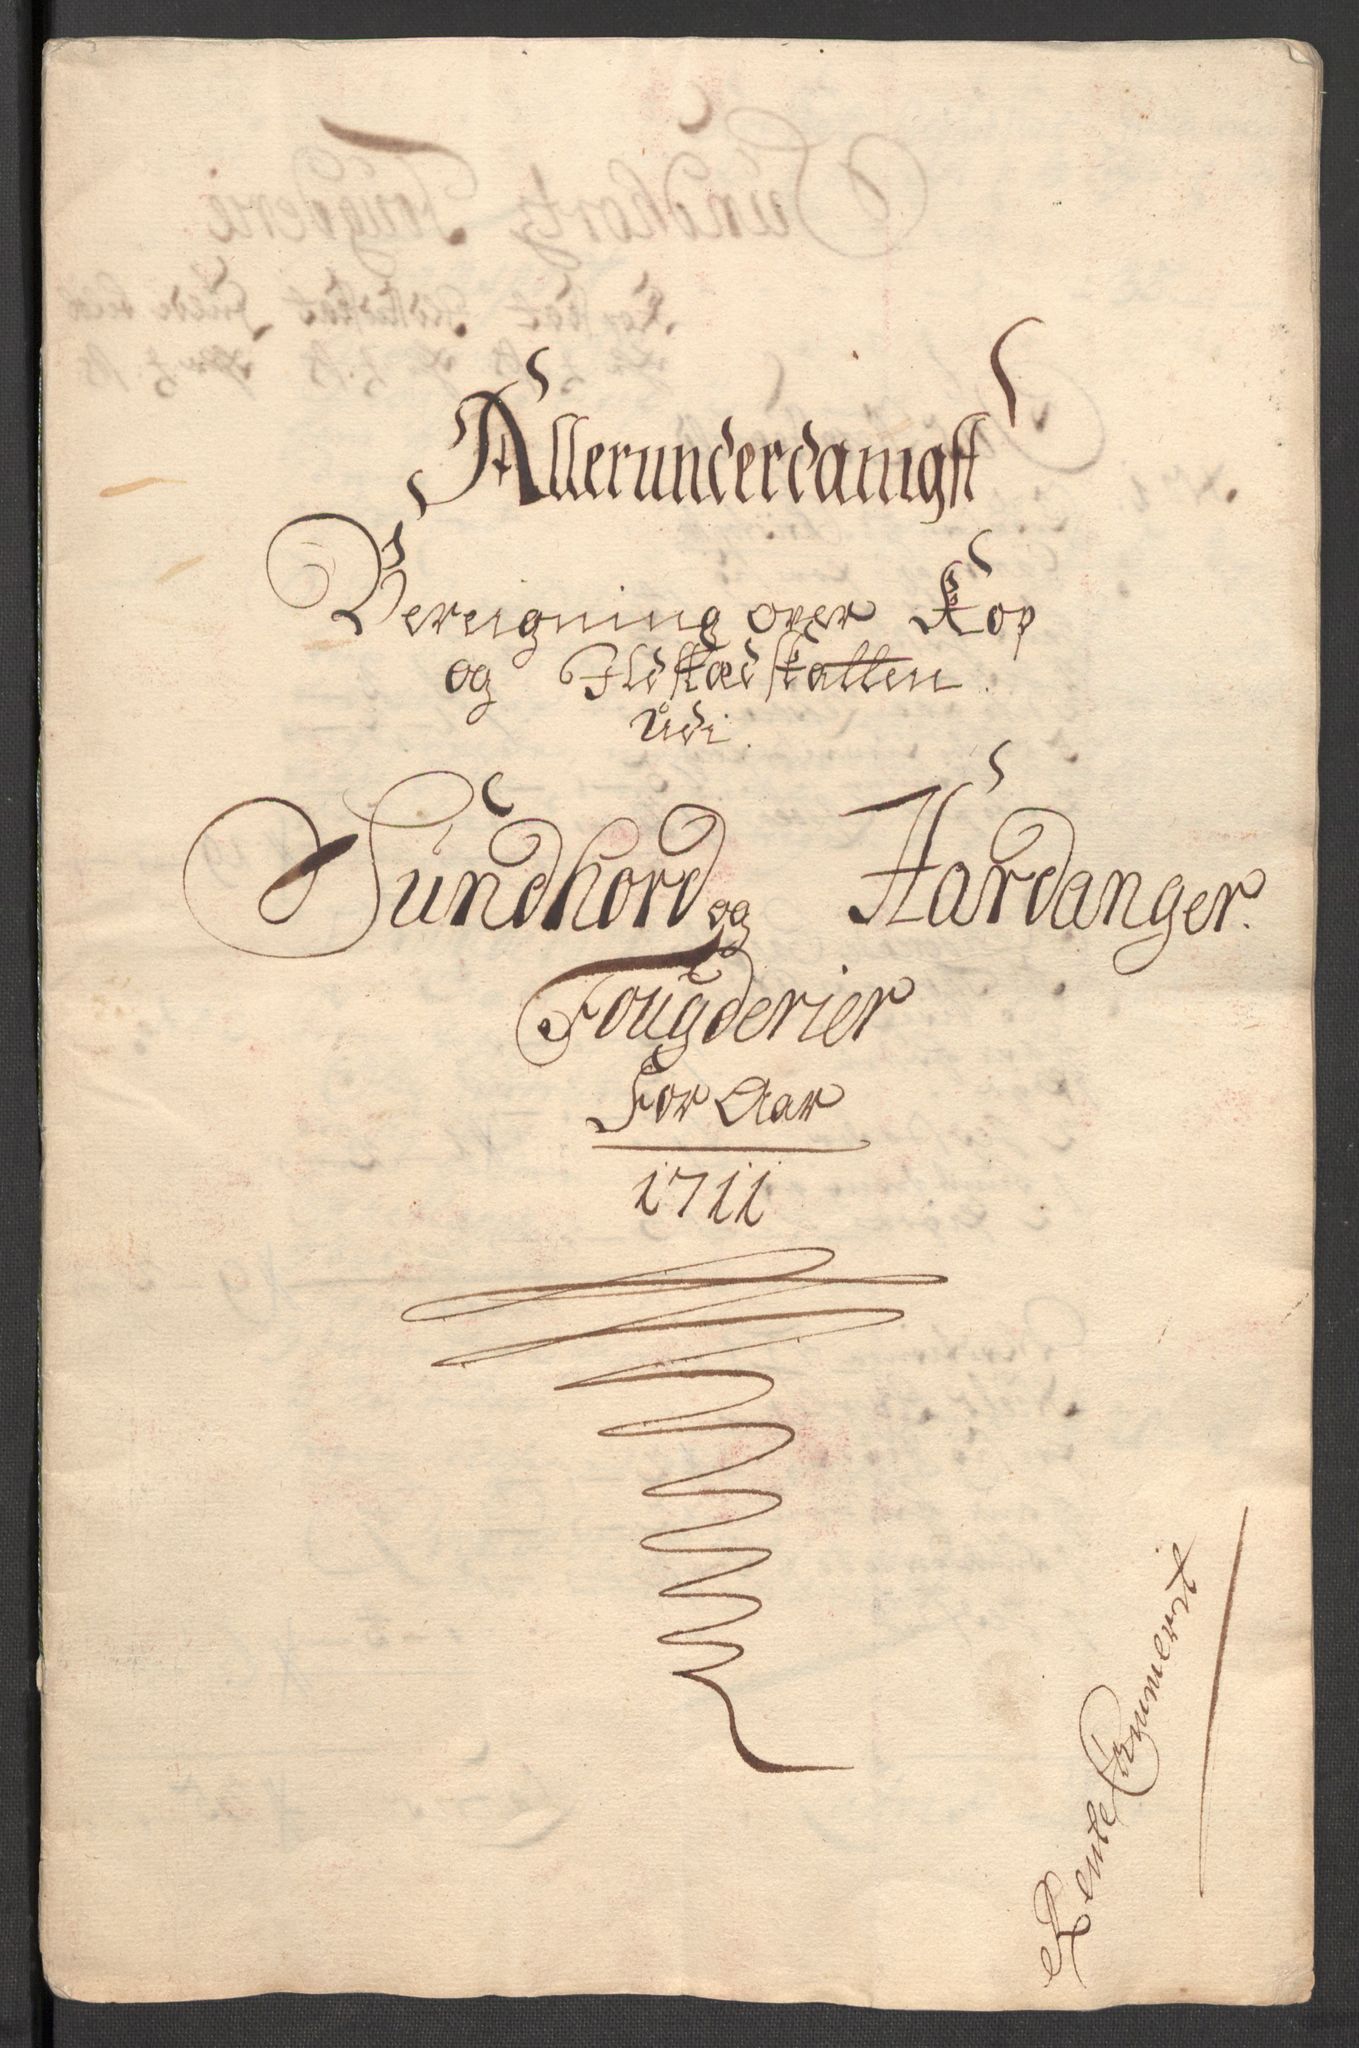 Allerunderdanigst
Bereigning over Kop
og Ildstædskatten
Udi
Sundhord og Hardanger.
Fougderier
For Aar
1711
Rente Cammerit